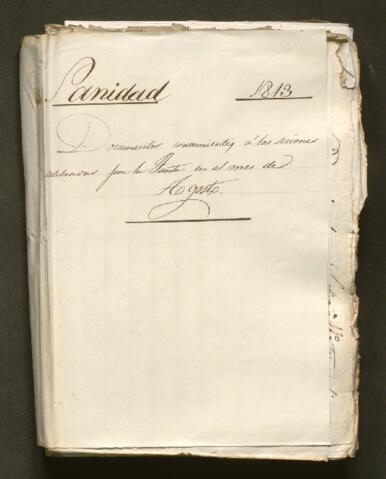 Sanidad 1813
Documentos concernientes á las sesiones
celebradas por la Junta en el mes de
Agosto.